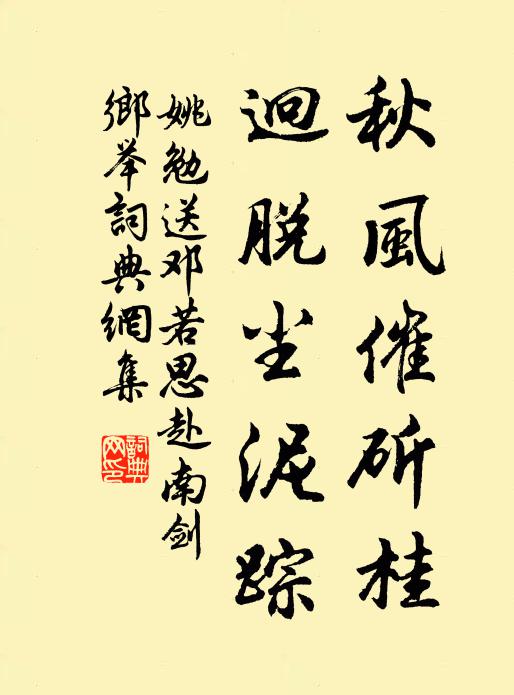 秋風催斫桂
迥脱尘泥踪
姚勉送邓若思赴南剑
鄉举詞典網集
詞典网印